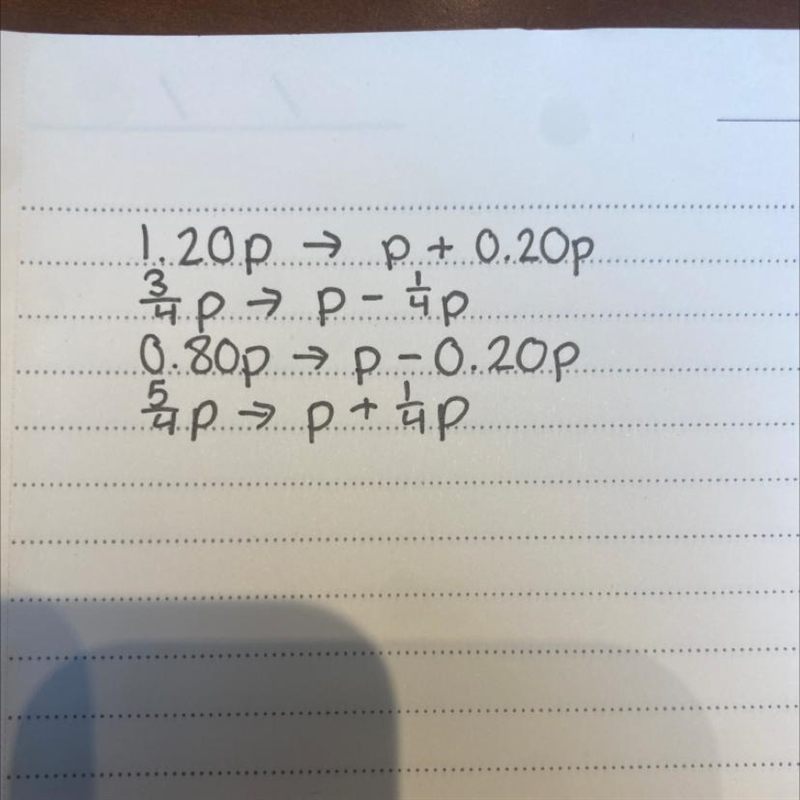 1.20p → p + 0.20p
3/4 p → p - 1/4 p
0.80p → p - 0.20p
5/4 p → p + 1/4 p